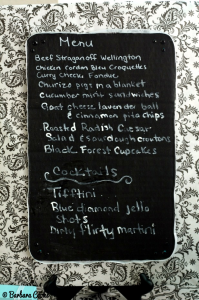 Menu
Beef Straganoff Wellington
Chicken Cordon Bleu Croquettes
Curry Cheese Fondue
Churizo pigs in a blanket
Cucumber mint sandwhiches
Goat cheese lavender ball
& cinnamon pita chips
Roasted Radish Caesar
Salad & sourdough croutons
Black Forest Cupcakes
Cocktails
Tifftini
Blue diamond jello
shots
Dirty flirty martini
© Barbara